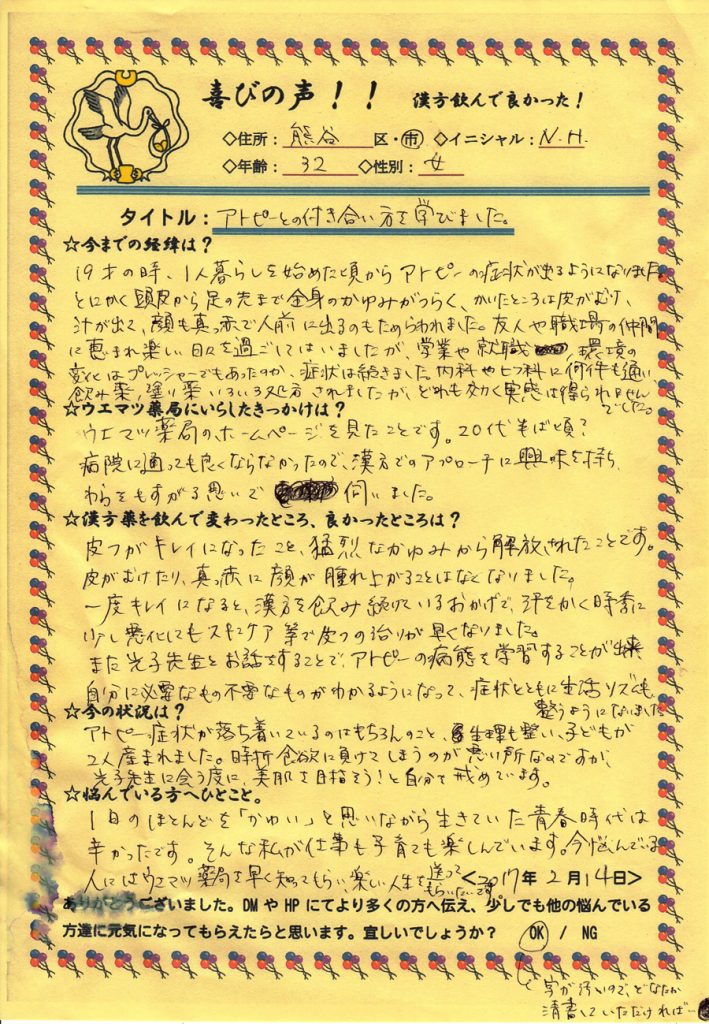 喜びの声！！ 漢方飲んで良かった！
◇住所：熊谷 区・市 ◇イニシャル：N.H.
◇年齢：32 ◇性別：女
タイトル：アトピーとの付き合い方を学びました。
☆今までの経緯は？
19才の時、1人暮らしを始めた頃からアトピーの症状が出るようになりました。
とにかく頭皮から足の先まで全身のかゆみがつらく、かいたところは皮がむけ、
汁が出て、顔も真っ赤で人前に出るのもためらわれました。友人や職場の仲間
に恵まれ楽しい日々を過ごしてはいましたが、学業や就職、環境の
変化はプレッシャーでもあったのか、症状は続きました。内科やヒフ科に何件も通い、
飲み薬、塗り薬、いろいろ処方されましたが、どれも効く実感は得られません
でした。
☆ウエマツ薬局にいらしたきっかけは？
ウエマツ薬局のホームページを見たことです。20代半ば頃？
病院に通っても良くならなかったので、漢方でのアプローチに興味を持ち、
わらをもすがる思いで 伺いました。
☆漢方薬を飲んで変わったところ、良かったところは？
皮フがキレイになったこと、猛烈なかゆみから解放されたことです。
皮がむけたり、真っ赤に顔が腫れ上がることはなくなりました。
一度キレイになると、漢方を飲み続けているおかげで、汗をかく時季に
少し悪化してもスキンケア等で皮フの治りが早くなりました。
また光子先生とお話をすることで、アトピーの病態を学習することが出来
自分に必要なもの不要なものがわかるようになって、症状とともに生活リズムも
整うようになりました。
☆今の状況は？
アトピー症状が落ち着いているのはもちろんのこと、生理も整い、子どもが
2人産まれました。時折食欲に負けてしまうのが悪い所なのですが、
光子先生に会う度に、美肌を目指そう！と自分で戒めています。
☆悩んでいる方へひとこと。
1日のほとんどを「かゆい」と思いながら生きていた青春時代は
辛かったです。そんな私が仕事も子育ても楽しんでいます。今悩んでいる
人にはウエマツ薬局を早く知ってもらい、楽しい人生を送って
もらいたいです。
<2017年2月14日>
ありがとうございました。DMやHPにてより多くの方へ伝え、少しでも他の悩んでいる
方達に元気になってもらえたらと思います。宜しいでしょうか？ OK / NG
字が汚いので、どなたか
清書していただければ…